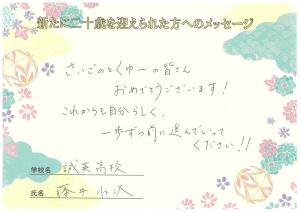 新たに二十歳を迎えられた方へのメッセージ
さいごのとくゅーの皆さん
おめでとうございます!
これからも自分らしく、
一歩ずつ前に進んでいって
ください!!
学校名 誠英高校
氏名 藤井